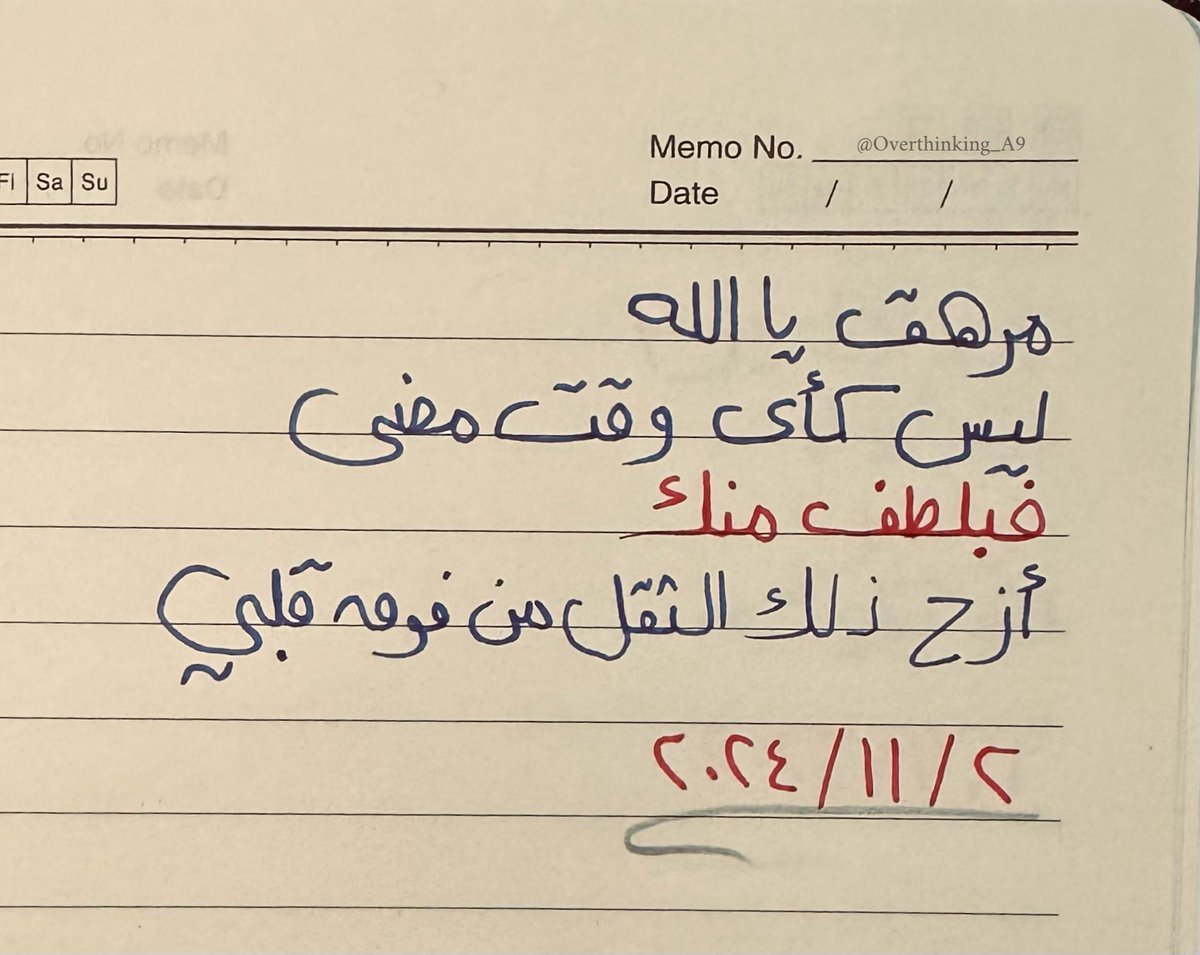 Memo No. @Overthinking_A9
Sa Su
Date / /
مرهق يا الله
ليس كأى وقت مضى
فبلطف منك
أزح ذلك الثقل من فوق قلبي
٢/١١/٢٠٢٤